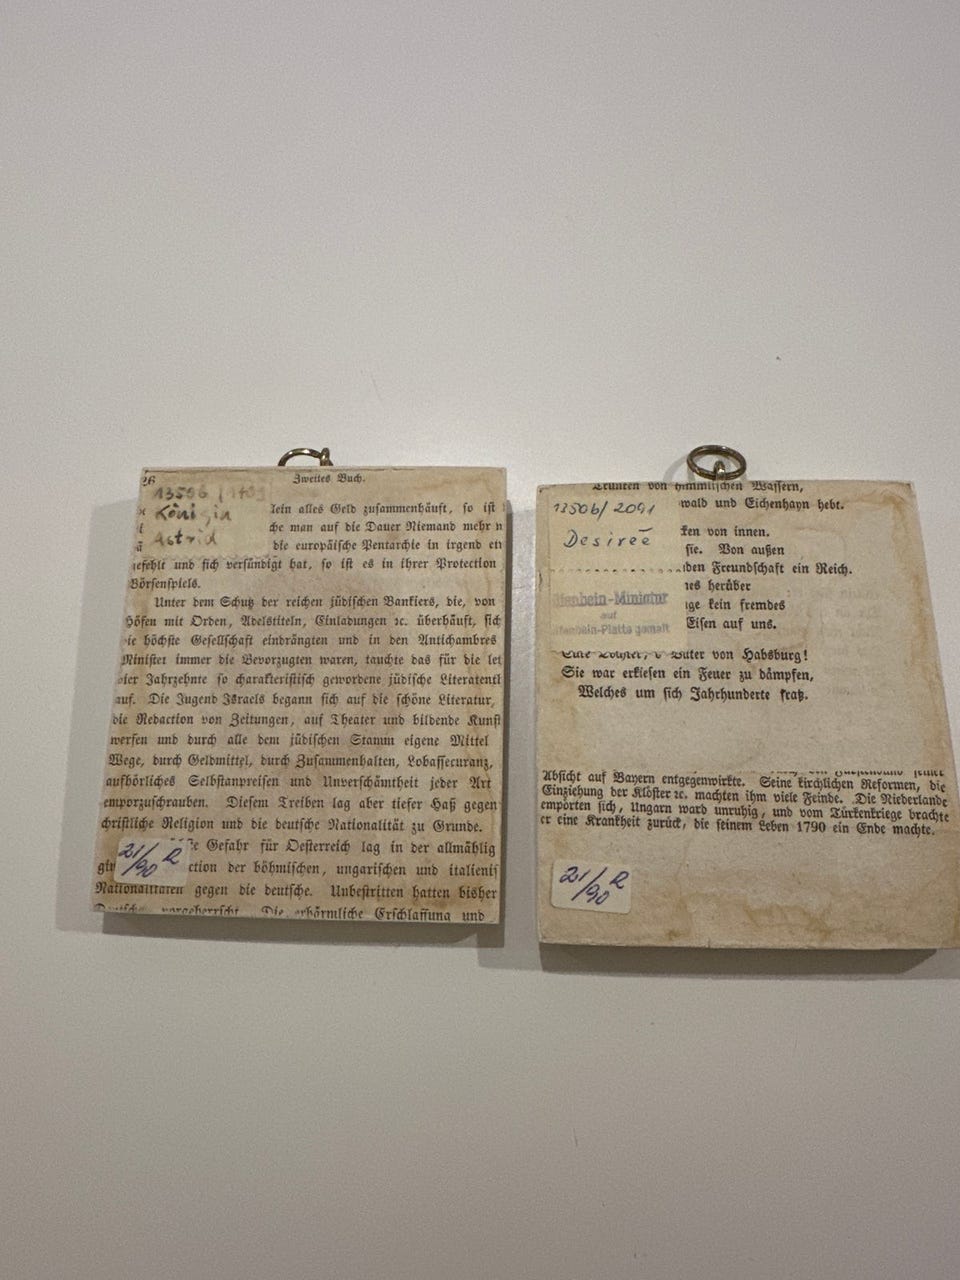 26
Zweites Buch.
13506 / 1409
Königin
Astrid
lein alles Geld zusammenhäuft, so ist
che man auf die Dauer Niemand mehr
die europäische Pentarchie in irgend
gefehlt und sich versündigt hat, so ist es in ihrer Protection
Börsenspiels.
Unter dem Schutz der reichen jüdischen Bankiers, die, von
Höfen mit Orden, Adelstiteln, Einladungen ꝛc. überhäuft, sich
ie höchste Gesellschaft eindrängten und in den Antichambres
Minister immer die Bevorzugten waren, tauchte das für die let
vier Jahrzehnte so charakteristisch gewordene jüdische Literatent
auf. Die Jugend Israels begann sich auf die schöne Literatur,
die Redaction von Zeitungen, auf Theater und bildende Kunst
werfen und durch alle dem jüdischen Stamm eigene Mittel
Wege, durch Geldmittel, durch Zusammenhalten, Lobassecuranz,
aufhörliches Selbstanpreisen und Unverschämtheit jeder Art
emporzuschrauben. Diesem Treiben lag aber tiefer Haß gegen
christliche Religion und die deutsche Nationalität zu Grunde.
te Gefahr für Oesterreich lag in der allmählig
ction der böhmischen, ungarischen und italienis
Nationalitäten gegen die deutsche. Unbestritten hatten bisher
Deutsche vorgeherrscht. Die erbärmliche Erschlaffung und
21/90 R
Trunken von himmlischen Wassern,
wald und Eichenhayn hebt.
13506/2091
Desireē
ken von innen.
sie. Von außen
den Freundschaft ein Reich.
nes herüber
ige kein fremdes
Eisen auf uns.
lfenbein-Miniatur
auf
lfenbein-Platte gemalt
Eine Tochter, o Vater von Habsburg!
Sie war erkiesen ein Feuer zu dämpfen,
Welches um sich Jahrhunderte fraß.
Absicht auf Bayern entgegenwirkte. Seine kirchlichen Reformen, die
Einziehung der Klöster ꝛc. machten ihm viele Feinde. Die Niederlande
empörten sich, Ungarn ward unruhig, und vom Türkenkriege brachte
er eine Krankheit zurück, die seinem Leben 1790 ein Ende machte.
21/90 R